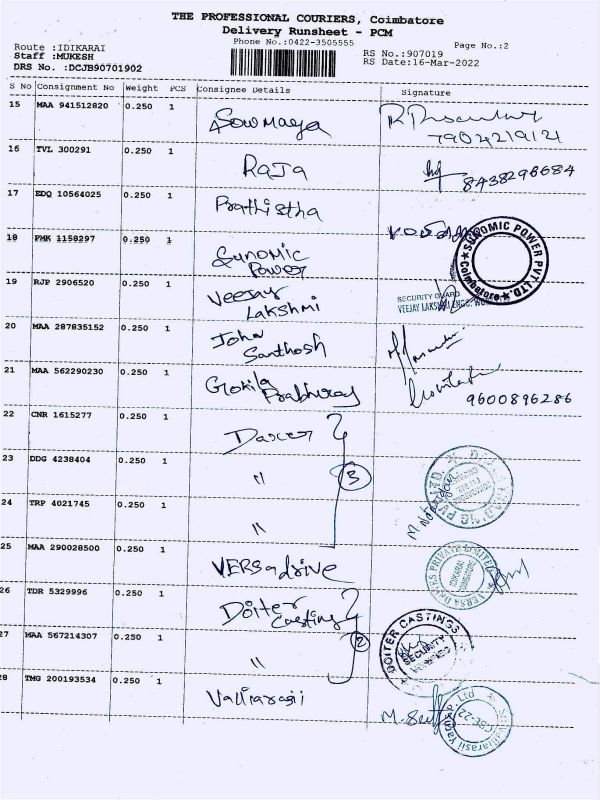 THE PROFESSIONAL COURIERS, Coimbatore
Delivery Runsheet - PCM
Phone No.:0422-3505555
Page No.:2
Route :IDIKARAI
Staff :MUKESH
DRS No. :DCJB90701902
RS No.:907019
RS Date:16-Mar-2022
S No Consignment No Weight PCS Consignee Details Signature
15 MAA 941512820 0.250 1 Sowmaya
7904219121
16 TVL 300291 0.250 1 RaJa 8438298684
17 EDQ 10564025 0.250 1 Prathistha
18 PMK 1158297 0.250 1 Sunomic
Power
SUNOMIC POWER PVT. LTD. ★ Coimbatore ★
19 RJP 2906520 0.250 1 Veejay
Lakshmi
SECURITY GUARD
VEEJAY LAKSHMI ENGG.
20 MAA 287835152 0.250 1 John
Santhosh
21 MAA 562290230 0.250 1 Gokila
Prabhuraj
9600896286
22 CNR 1615277 0.250 1 Daxer
23 DDG 4238404 0.250 1 " 3
24 TRP 4021745 0.250 1 "
25 MAA 290028500 0.250 1 VERSadrive
VERSA DRIVES PRIVATE LIMITED
IDIKARAI
26 TDR 5329996 0.250 1 Doiter
Casting
27 MAA 567214307 0.250 1 " 2
DOITER CASTINGS
SECURITY
28 TMG 200193534 0.250 1 Valliarasii
CBE-22